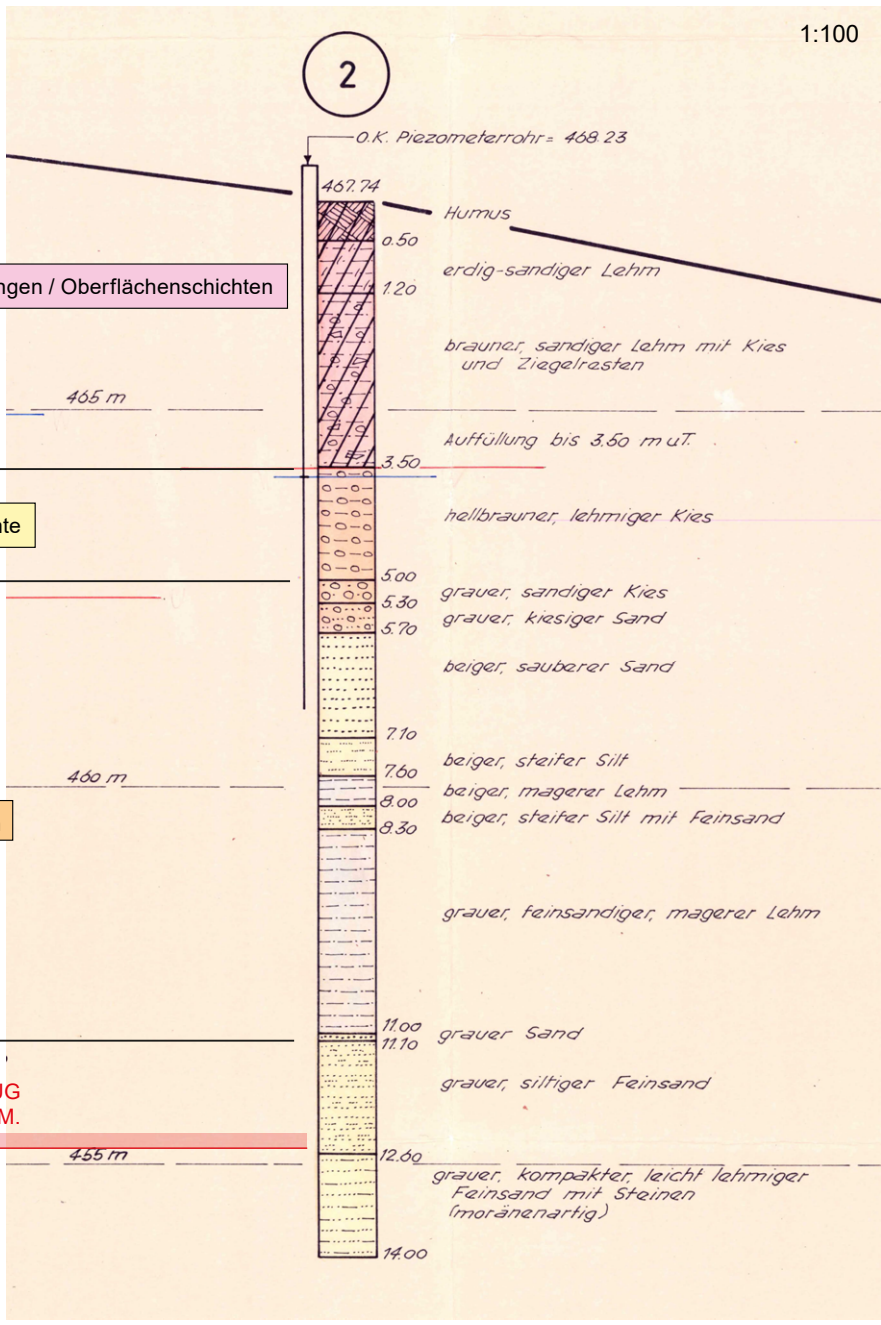 1:100
2
O.K. Piezometerrohr = 468.23
467.74
Humus
0.50
erdig-sandiger Lehm
ngen / Oberflächenschichten
1.20
brauner, sandiger Lehm mit Kies
und Ziegelresten
465 m
Auffüllung bis 3.50 m u.T.
3.50
hellbrauner, lehmiger Kies
te
5.00
grauer, sandiger Kies
5.30
grauer, kiesiger Sand
5.70
beiger, sauberer Sand
7.10
beiger, steifer Silt
460 m
7.60
beiger, magerer Lehm
8.00
beiger, steifer Silt mit Feinsand
8.30
grauer, feinsandiger, magerer Lehm
11.00
grauer Sand
11.10
grauer, siltiger Feinsand
UG
M.
455 m
12.60
grauer, kompakter, leicht lehmiger
Feinsand mit Steinen
(moränenartig)
14.00